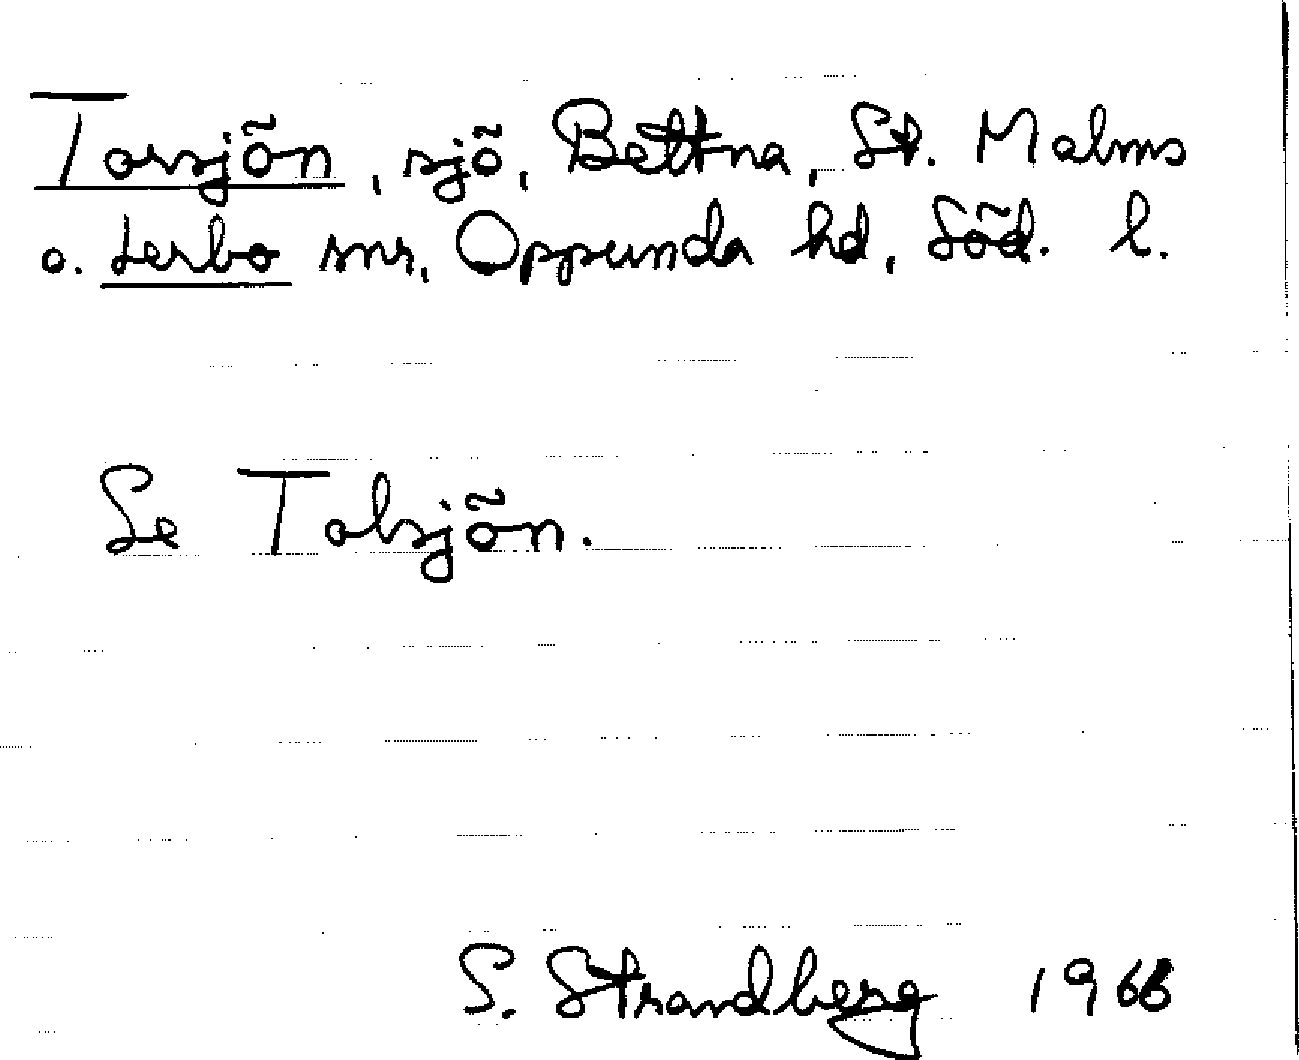 Torsjön, sjö, Bettna, St. Malms
o. Lerbo snr, Oppunda hd, Söd. l.
Se Tolsjön.
S. Strandberg 1966